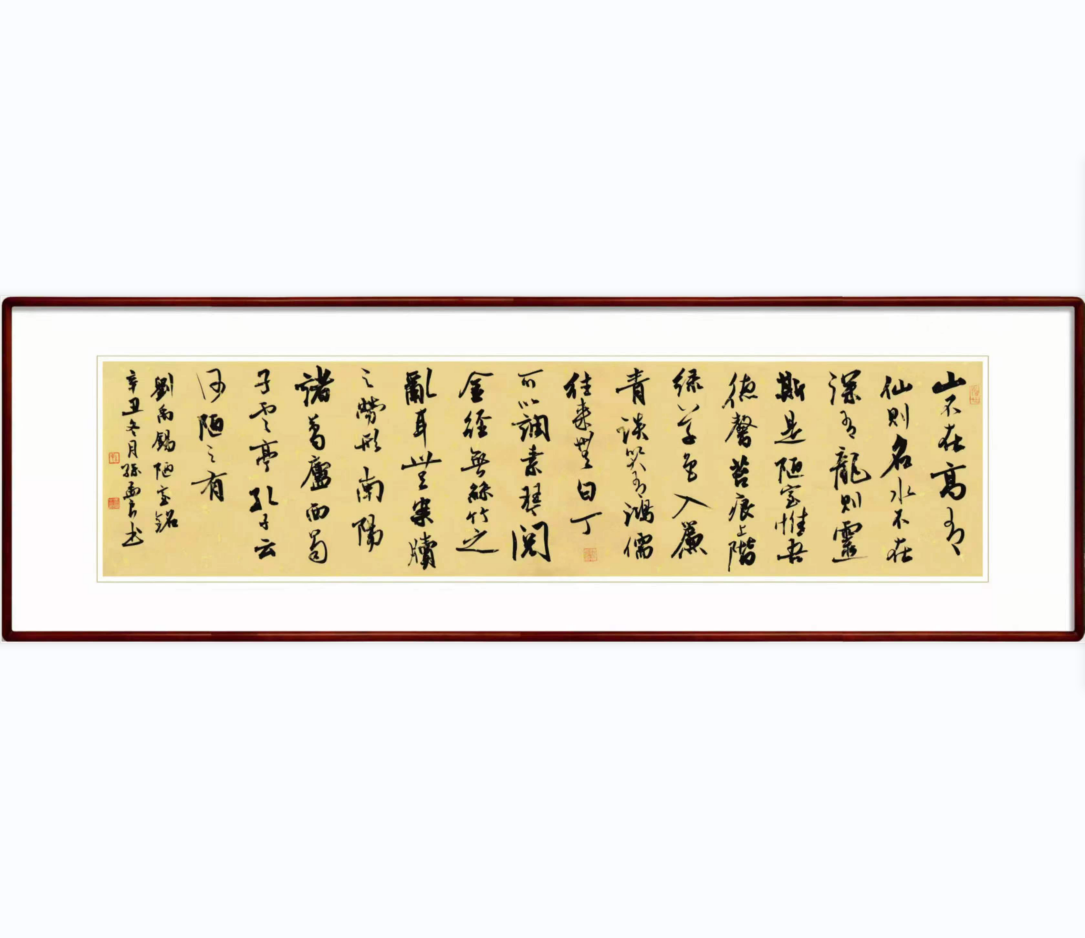 山不在高有
仙則名水不在
深有龍則靈
斯是陋室惟吾
德馨苔痕上階
緑草色入簾
青談笑有鴻儒
往來無白丁
可以調素琴閱
金經無絲竹之
亂耳無案牘
之勞形南陽
諸葛廬西蜀
子雲亭孔子云
何陋之有
劉禹錫陋室銘
辛丑冬月孫孟書